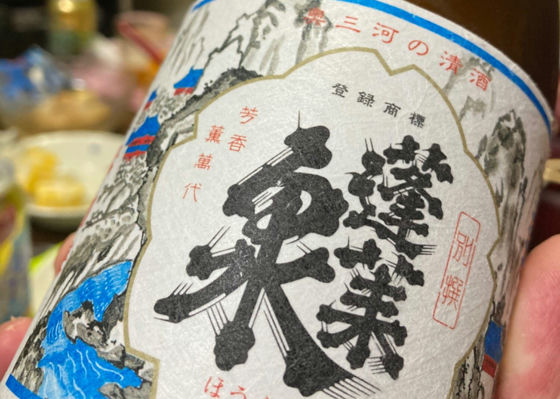 奥三河の清酒
登録商標
芳香
薫萬代
蓬莱
泉
別撰
ほう